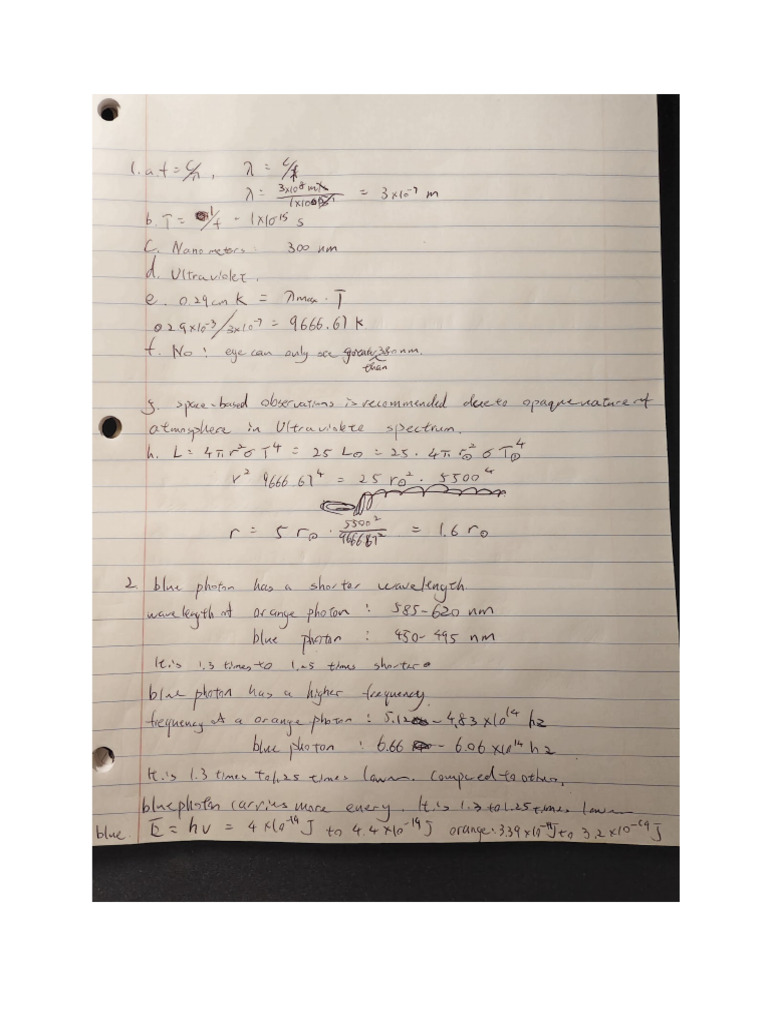 1. a. f = c/λ, λ = c/f
λ = 3×10⁸ m/s / 1×10¹⁵ /s = 3×10⁻⁷ m
b. T = 1/f = 1×10⁻¹⁵ s
c. Nanometers: 300 nm
d. Ultraviolet.
e. 0.29 cm K = λmax · T
0.29×10⁻³/3×10⁻⁷ = 9666.67 K
f. No: eye can only see greater 380nm.
than
g. space-based observations is recommended due to opaque nature of
atmosphere in Ultraviolete spectrum.
h. L = 4πr²σT⁴ = 25 L⊙ = 25 · 4π r⊙² σ T⊙⁴
r² 9666.67⁴ = 25 r⊙² · 5500⁴
r = 5 r⊙ · 5500²/9666.67² = 1.6 r⊙
2. blue photon has a shorter wavelength
wavelength of orange photon : 585-620 nm
blue photon : 450-495 nm
It is 1.3 times to 1.25 times shorter.
blue photon has a higher frequency.
frequency of a orange photon : 5.12 - 4.83 ×10¹⁴ hz
blue photon : 6.66 - 6.06 ×10¹⁴ hz
It is 1.3 times to 1.25 times compared to other.
blue photon carries more energy. It is 1.3 to 1.25 times
blue. E = hν = 4×10⁻¹⁹ J to 4.4×10⁻¹⁹ J orange: 3.39×10⁻¹⁹ J to 3.2×10⁻¹⁹ J